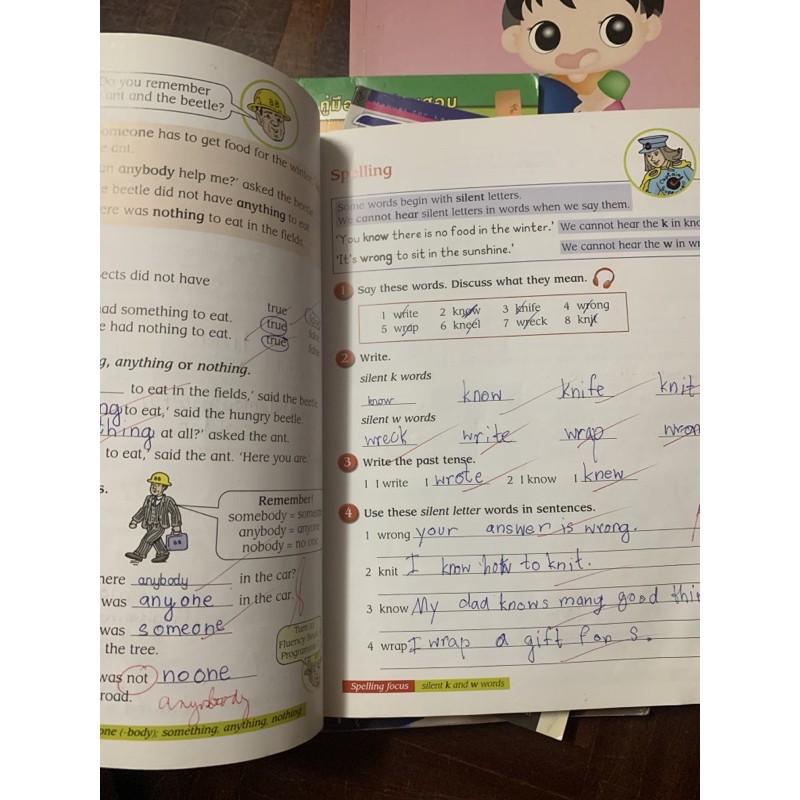 คู่มือ
สอบ
Do you remember
ant and the beetle?
BB
omeone has to get food for the winter
e ant.
anybody help me?' asked the beetle
e beetle did not have anything to eat
ere was nothing to eat in the fields.
ects did not have
ad something to eat. true
e had nothing to eat. true
true
g, anything or nothing.
to eat in the fields,' said the beetle
ng to eat,' said the hungry beetle.
thing at all?' asked the ant.
to eat,' said the ant. 'Here you are.'
s.
Remember!
somebody = someone
anybody = anyone
nobody = no one
BB
here anybody in the car?
was anyone in the car.
was someone
the tree.
was not no one
road. anybody
Turn to
Fluency Book
Programme
one (-body); something, anything, nothing
Spelling
Some words begin with silent letters.
We cannot hear silent letters in words when we say them.
'You know there is no food in the winter.' We cannot hear the k in kno
'It's wrong to sit in the sunshine.' We cannot hear the w in wr
1 Say these words. Discuss what they mean.
1 write 2 know 3 knife 4 wrong
5 wrap 6 kneel 7 wreck 8 knit
2 Write.
silent k words
know know knife knit
silent w words
wreck write wrap wron
3 Write the past tense.
1 I write I wrote 2 I know I knew
4 Use these silent letter words in sentences.
1 wrong your answer is wrong.
2 knit I know how to knit.
3 know My dad knows many good thin
4 wrap I wrap a gift for s.
Spelling focus silent k and w words